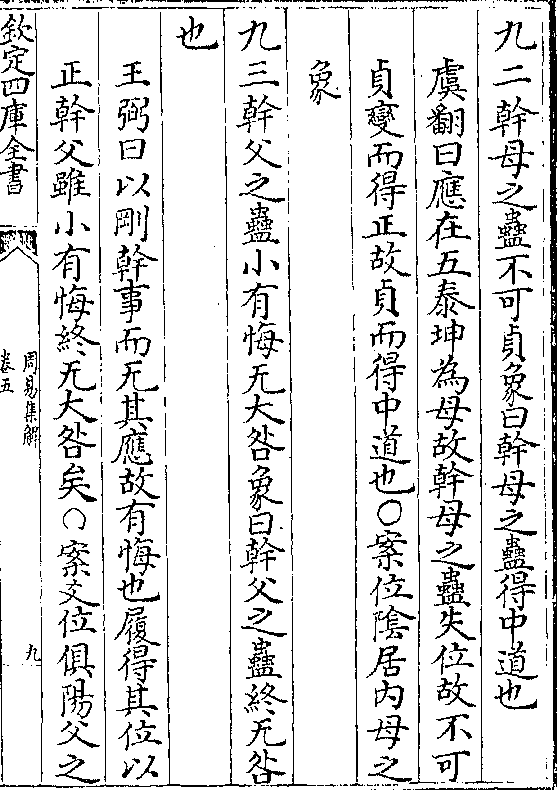 九二幹母之蠱不可貞象曰幹母之蠱得中道也
虞翻曰應在五泰坤為母故幹母之蠱失位故不可
貞變而得正故貞而得中道也○案位陰居内母之
象
九三幹父之蠱小有悔无大咎象曰幹父之蠱終无咎
也
王弼曰以剛幹事而无其應故有悔也履得其位以
正幹父雖小有悔終无大咎矣○案爻位俱陽父之
欽定四庫全書
周易集解
卷五
九